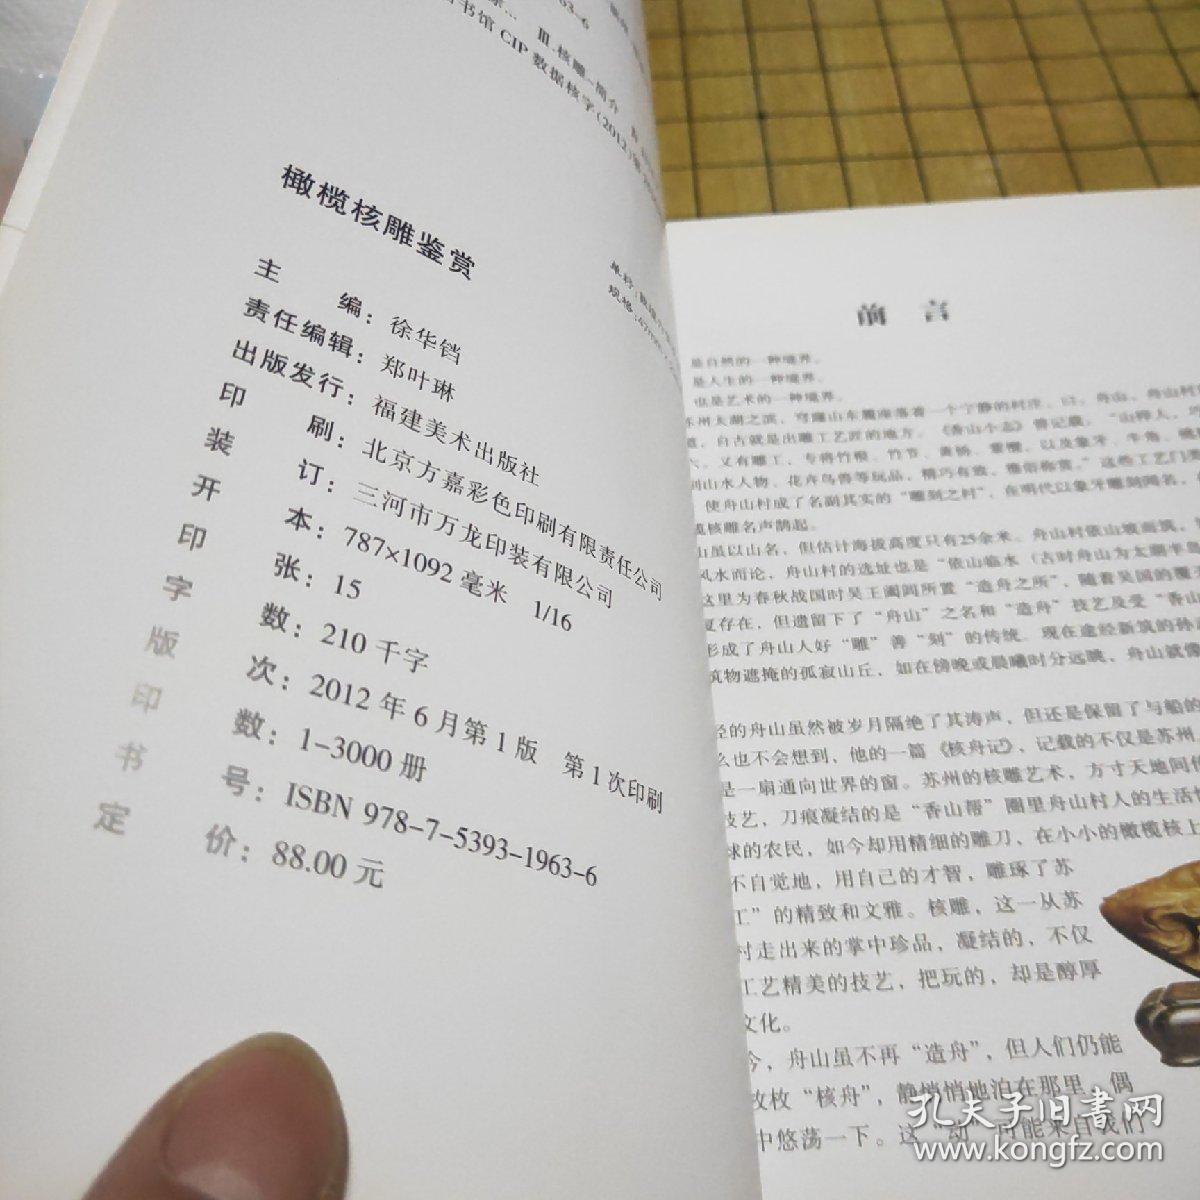 63-6
Ⅲ.核雕-简介 Ⅳ
书馆 CIP 数据核字(2012)第
橄榄核雕鉴赏
主 编：徐华铛
责任编辑：郑叶琳
出版发行：福建美术出版社
印 刷：北京方嘉彩色印刷有限责任公司
装 订：三河市万龙印装有限公司
开 本：787×1092 毫米 1/16
印 张：15
字 数：210 千字
版 次：2012 年 6 月第 1 版 第 1 次印刷
印 数：1-3000 册
书 号：ISBN 978-7-5393-1963-6
定 价：88.00 元
前 言
是自然的一种境界。
是人生的一种境界。
也是艺术的一种境界。
苏州太湖之滨，穹窿山东麓座落着一个宁静的村庄，曰：舟山。舟山村
，自古就是出雕工艺匠的地方。《香山小志》曾记载，“山稗人，
又有雕工，专将竹根、竹节、黄杨、紫檀，以及象牙、牛角、
刻山水人物、花卉鸟兽等玩品，精巧有致，雅俗称赏。”这些工艺门类
使舟山村成了名副其实的“雕刻之村”，在明代以象牙雕刻闻名，
榄核雕名声鹊起。
山虽以山名，但估计海拔高度只有25余米。舟山村依山坡而筑，
风水而论，舟山村的选址也是“依山临水（古时舟山为太湖半岛
这里为春秋战国时吴王阖闾所置“造舟之所”，随着吴国的覆
复存在，但遗留下了“舟山”之名和“造舟”技艺及受“香山
形成了舟山人好“雕”善“刻”的传统。现在途经新筑的孙武
筑物遮掩的孤寂山丘，如在傍晚或晨曦时分远眺，舟山就像
经的舟山虽然被岁月隔绝了其涛声，但还是保留了与船的
么也不会想到，他的一篇《核舟记》，记载的不仅是苏州，
是一扇通向世界的窗。苏州的核雕艺术，方寸天地间传
技艺，刀痕凝结的是“香山帮”圈里舟山村人的生活情
球的农民，如今却用精细的雕刀、在小小的橄榄核上
不自觉地，用自己的才智，雕琢了苏
工”的精致和文雅。核雕，这一从苏
村走出来的掌中珍品，凝结的，不仅
工艺精美的技艺，把玩的，却是醇厚
文化。
今，舟山虽不再“造舟”，但人们仍能
枚枚“核舟”，静悄悄地泊在那里，偶
中悠荡一下。这“动”可能来自我们
孔夫子旧书网
www.kongfz.com